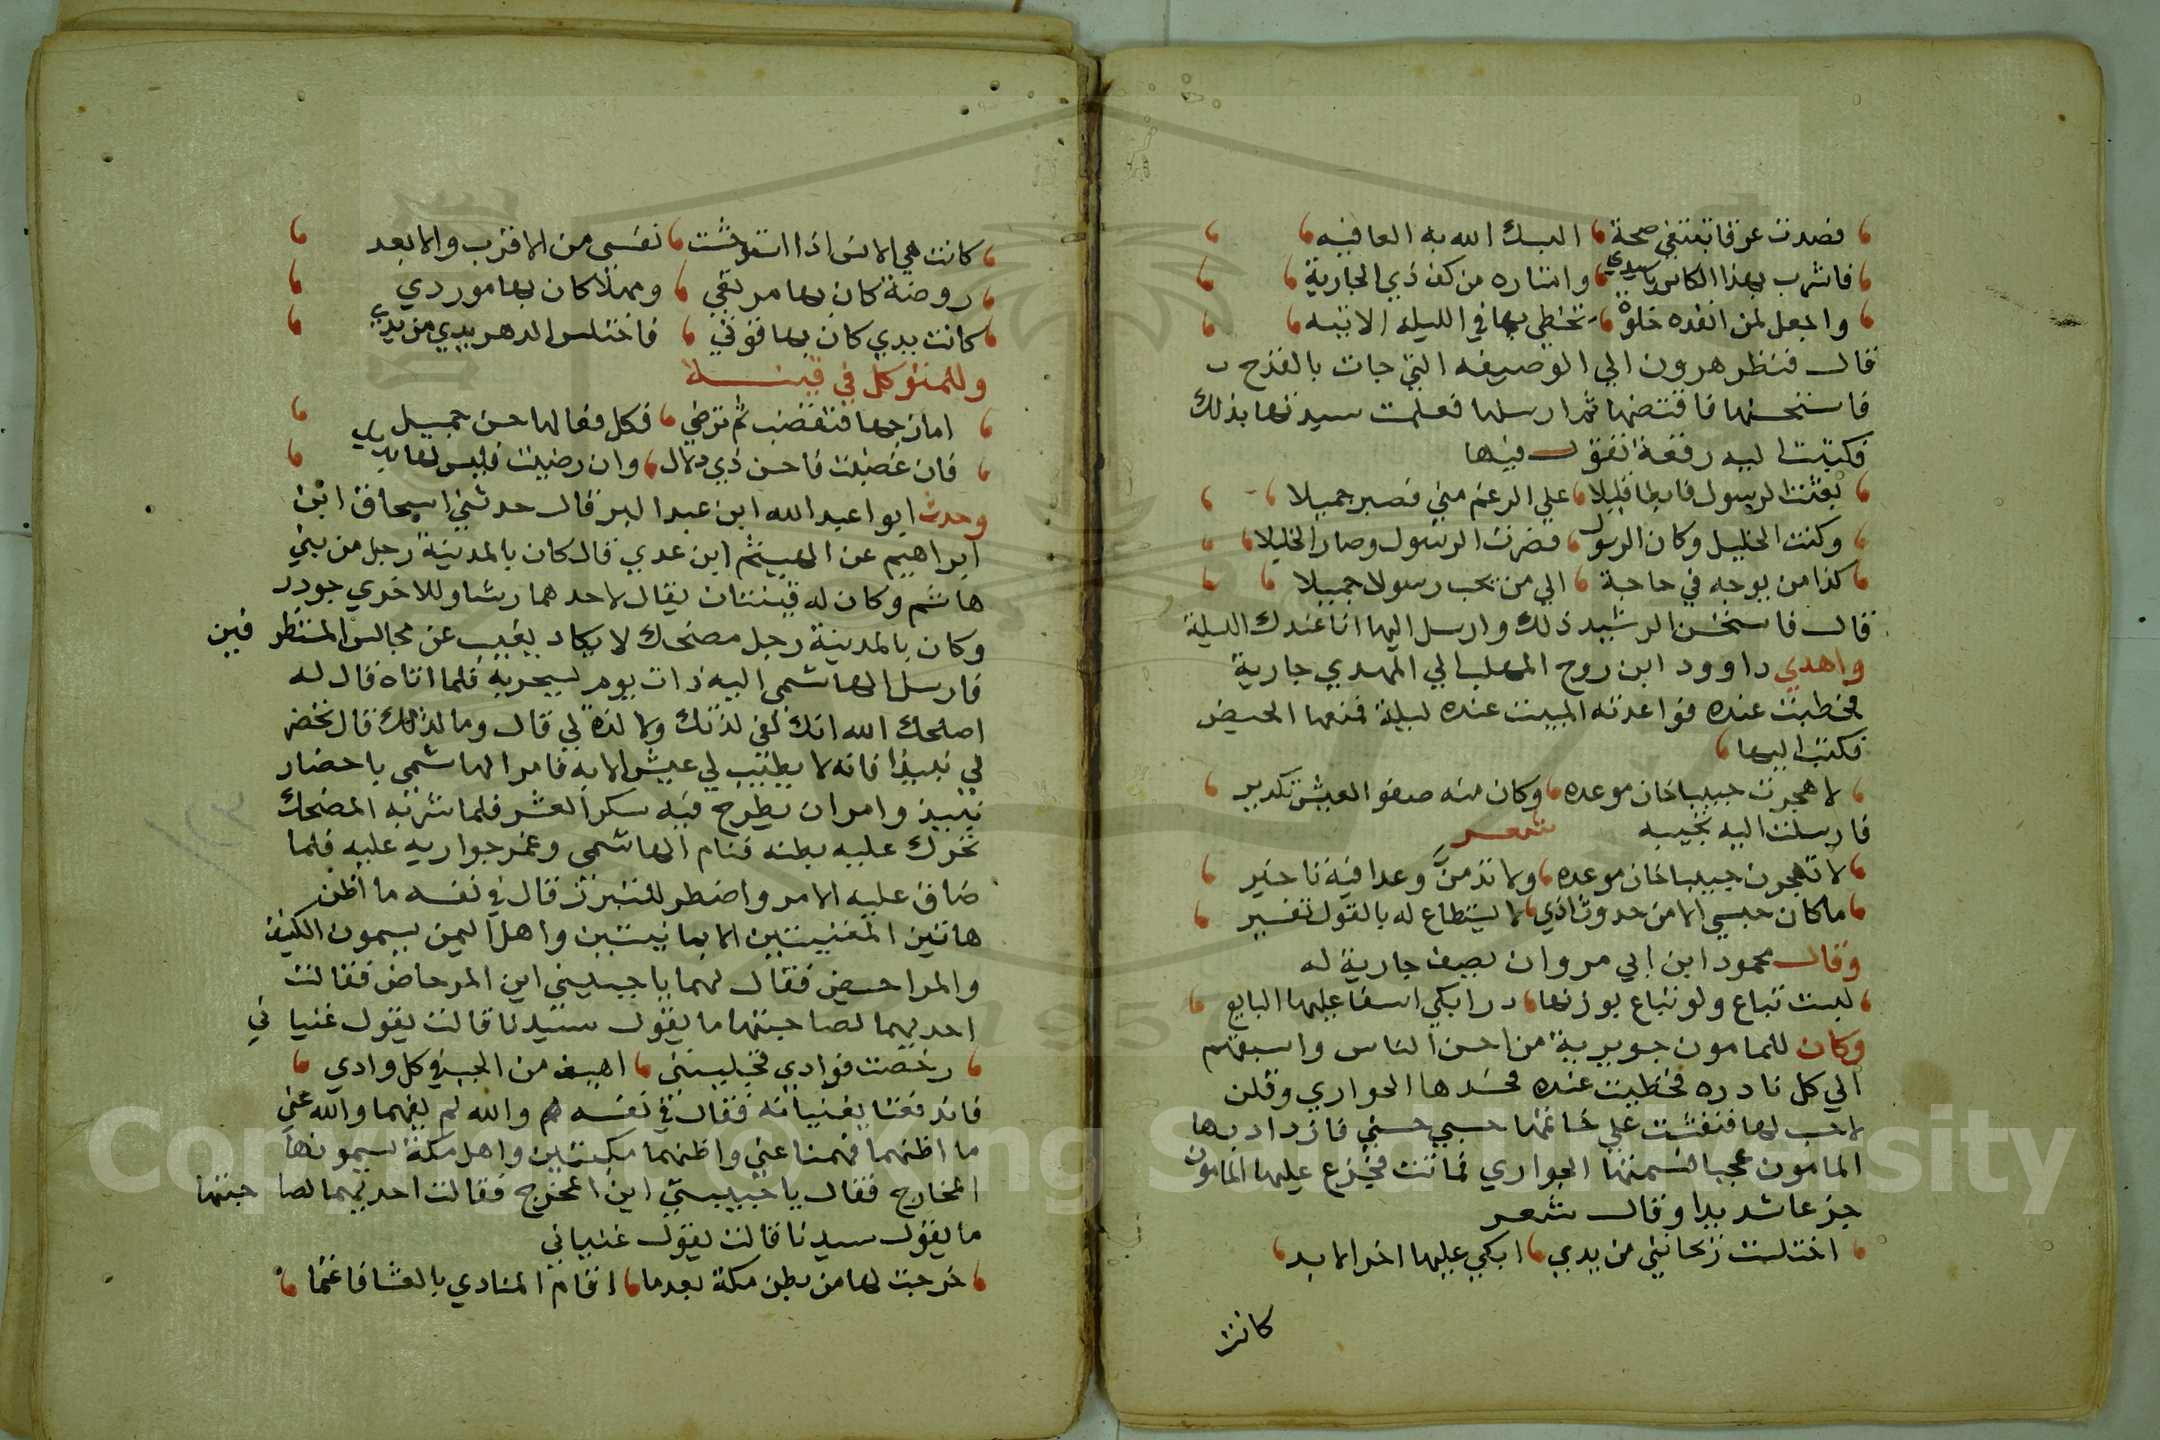 فصدت عرقا تبتغي صحة البسك الله به العافيه
فاشرب بهذا الكاس ياسيدي وامتاره من كف ذي الجارية
واجعل لمن انفده خلوة تخطي بها في الليلة الاتيه
قال فنظر هرون الي الوصيفه التي جات بالقدح
فاستحسنها فاقتضها ثم ارسلها فعلمت سيدتها بذلك
فكتبت اليه رقعة تقول فيها
بعثت الرسول فابطا قليلا علي الرغم مني فصبر جميلا
وكنت الخليل وكان الرسول فصرت الرسول وصار الخليلا
كذا من يوجه في حاجة الي من يحب رسولا جميلا
قال فاستحسن الرشيد ذلك وارسل اليها انا عندك الليلة
واهدي داوود ابن روح المهلب الي المهدي جارية
فحظيت عنده فواعدته المبيت عنده ليلة فمنعها الحيض
فكتب اليها
لاهجرت حبيبا خان موعده وكان منه صفو العيش تكدير
فارسلت اليه تجيبه شعر
لا تهجرن حبيبا خان موعده ولا تذمنّ وعدا فيه تاخير
ما كان حبسي الا من حدوث اذي لا يستطاع له بالقول تفسير
وقال محمود ابن ابي مروان يصف جارية له
ليست تباع ولو تباع بوزنها درا بكي اسفا عليها البايع
وكان للمامون جويرية من احسن الناس واسبقهم
الي كل نادره فحظيت عنده فحسدها الجواري وقلن
لاحسب لها فنقشت علي خاتمها حسبي حسني فازداد بها
المامون عجبا فسمتها الجواري فماتت فجزع عليها المامون
جزعا شديدا وقال شعر
اختلست زيحانيتي من يدي ابكي عليها اخر الابد
كانت
كانت هي الانس اذا استوحشت نفسي من الاقرب والابعد
روضة كان بها مرتقي ومنهلا كان بها موردي
كانت يدي كان بها قوتي فاختلس الدهر يدي من يدي
وللمتوكل في قينة
امازحها فتغضب ثم ترضي فكل فعالها حسن جميل
فان غضبت فاحسن ذي دلال وان رضيت فليس لها بديل
وحدث ابوا عبد الله ابن عبد البر قال حدثني اسحاق ابن
ابراهيم عن الهيثم ابن عدي قال كان بالمدينة رجل من بني
هاشم وكان له قينتان يقال لاحدهما رشا وللاخري جودر
وكان بالمدينة رجل مضحك لا يكاد يغيب عن مجالس المتنظرفين
فارسل الهاشمي اليه ذات يوم ليسخر به فلما اتاه قال له
اصلحك الله انك لفي لذتك ولا لذة لي قال وما لذتك قال تحضر
لي نبيذا فانه لا يطيب لي عيش الا به فامر الهاشمي باحضار
نبيذ وامر ان يطرح فيه سكر العشر فلما شربه المضحك
تحرك عليه بطنه فنام الهاشمي وغمز جواريه عليه فلما
ضاق عليه الامر واضطر للتبرز قال في نفسه ما اظن
هاتين المغنيتين الا يمانيتين واهل اليمن يسمون الكنيف
والمراحيض فقال لهما يا حبيبتي اين المرحاض فقالت
احديهما لصاحبتها ما يقول سيدنا قالت يقول غنياني
رحضت فوادي فخليتني اهيم من الحب في كل وادي
فاندفعتا يغنيانه فقال في نفسه هم والله لم يفهما والله عني
ما اظنهما فهمتا عني واظنهما مكيتين واهل مكة يسمونها
المخارج فقال يا حبيبتي اين المخرج فقالت احديهما لصاحبتها
ما يقول سيدنا قالت يقول غنياني
خرجت لها من بطن مكة بعدما اقام المنادي بالعشا فاعتما